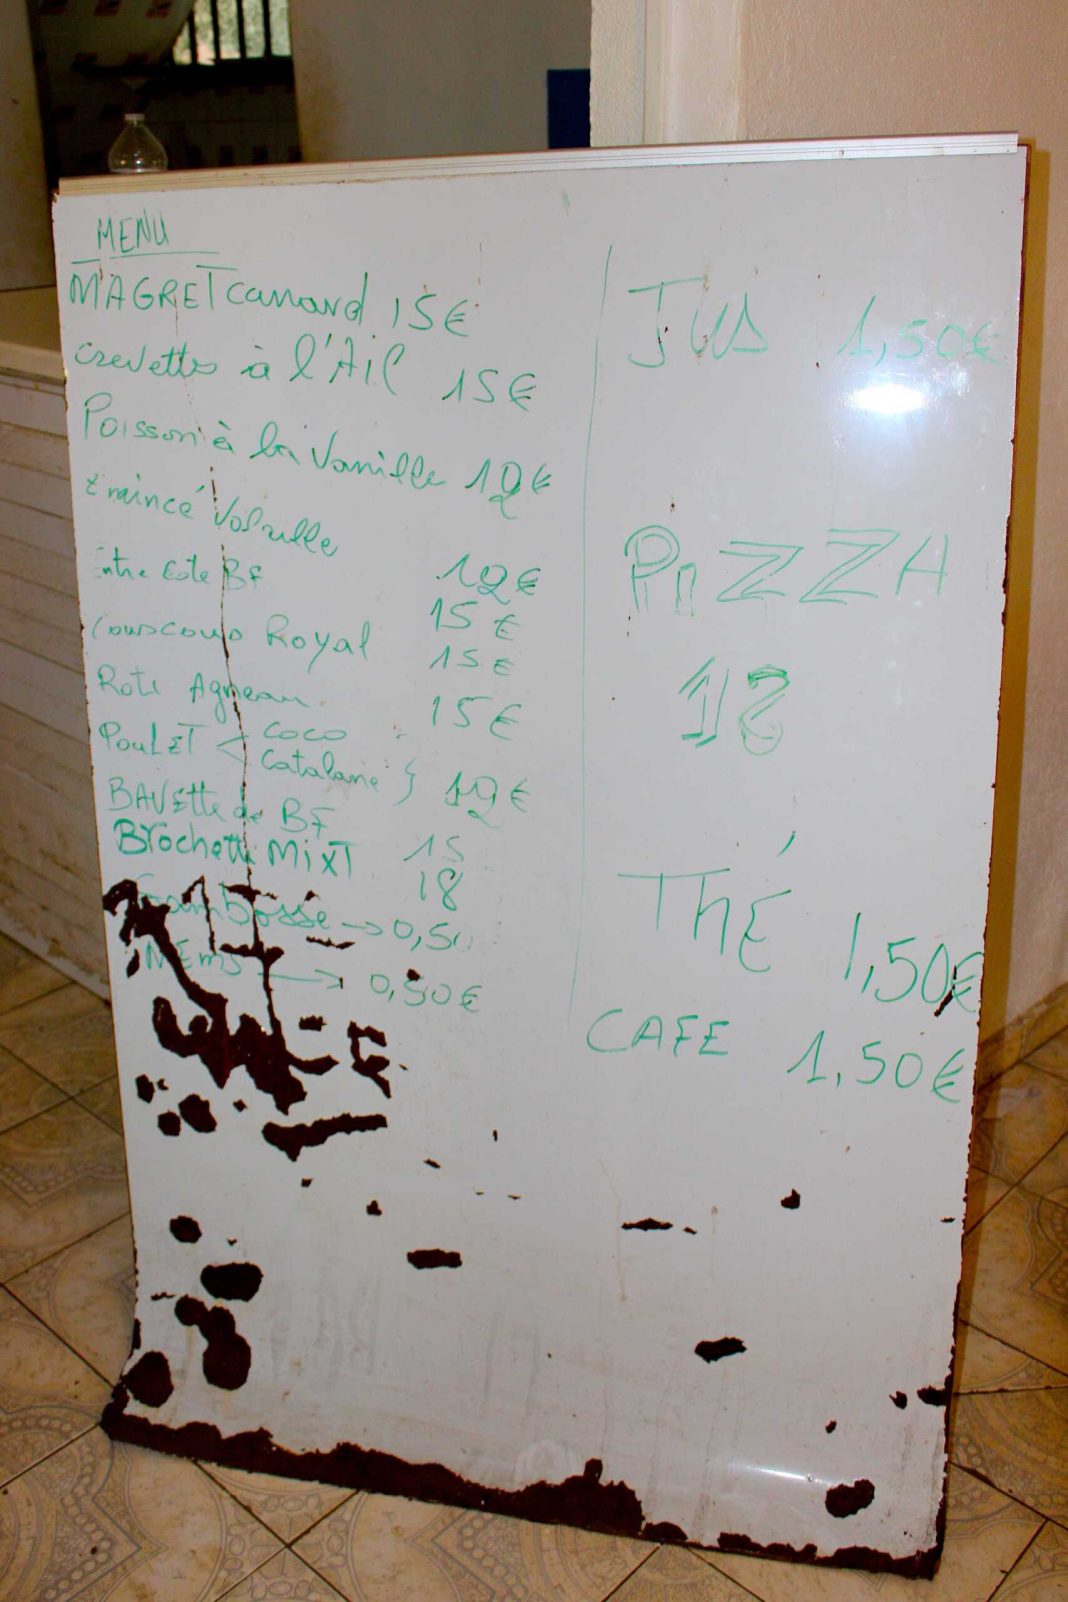 MENU
MAGRET canard 15€
crevettes à l'Ail 15€
Poisson à la Vanille 12€
Emincé Volaille 12€
Entre Cote BF 15€
Couscous Royal 15€
Roti Agneau 15€
POULET < Coco
Catalane } 12€
BAVette de BF 15
Brochette MiXT 18
Sambossée → 0,50
NEMS → 0,50€
JUS 1,50€
PIZZA
12
THÉ 1,50€
CAFE 1,50€